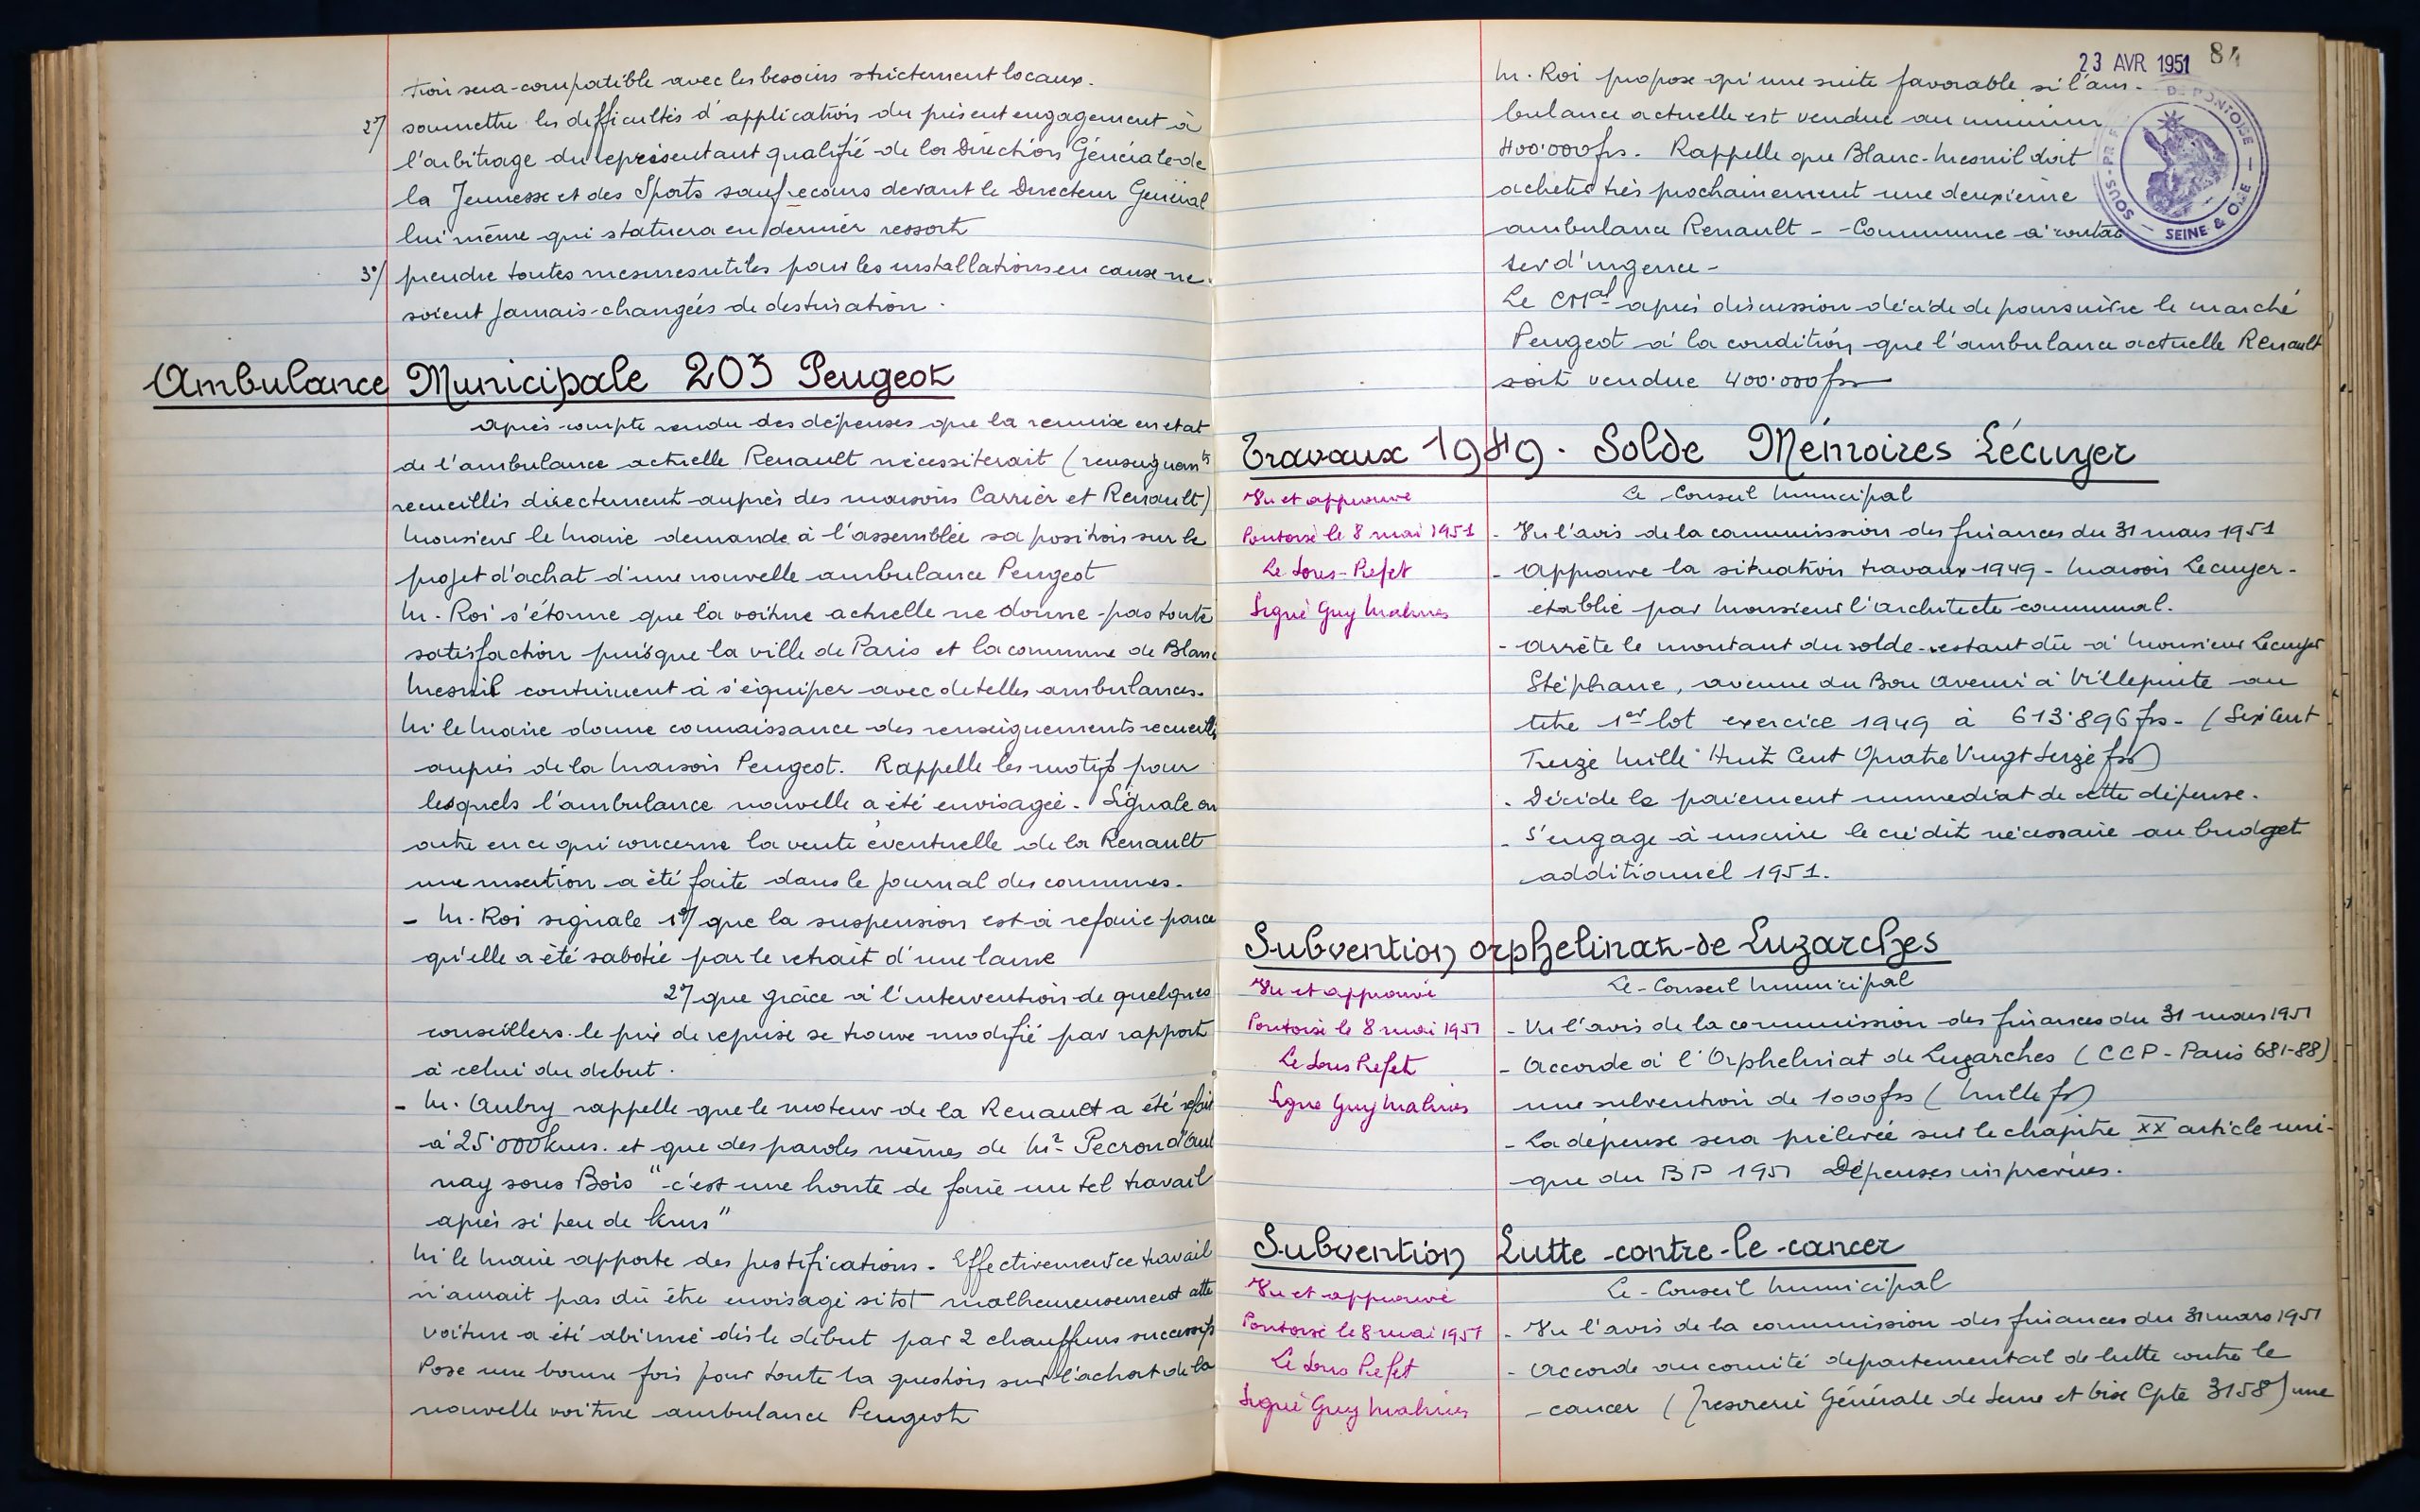 tion sera compatible avec les besoins strictement locaux.
2°/ soumettre les difficultés d'application du présent engagement à
l'arbitrage du représentant qualifié de la Direction Générale de
la Jeunesse et des Sports sauf recours devant le Directeur Général
lui même qui statuera en dernier ressort
3°/ prendre toutes mesures utiles pour les installations en cause ne
soient jamais changées de destination.
Ambulance Municipale 203 Peugeot
Après compte rendu des dépenses que la remise en etat
de l'ambulance actuelle Renault nécessiterait (renseignemts
recueillis directement auprès des maisons Carrier et Renault)
Monsieur le Maire demande à l'assemblée sa position sur le
projet d'achat d'une nouvelle ambulance Peugeot
M. Roi s'étonne que la voiture actuelle ne donne pas toute
satisfaction puisque la ville de Paris et la commune de Blanc
Mesnil continuent à s'équiper avec de telles ambulances.
M le Maire donne connaissance des renseignements recueillis
auprès de la Maison Peugeot. Rappelle les motifs pour
lesquels l'ambulance nouvelle a été envisagée. Signale en
outre en ce qui concerne la vente éventuelle de la Renault
une insertion a été faite dans le journal des communes.
- M. Roi signale 1°/ que la suspension est à refaire parce
qu'elle a été sabotée par le retrait d'une lame
2°/ que grâce à l'intervention de quelques
conseillers le prix de reprise se trouve modifié par rapport
à celui du debut.
- M. Aubry rappelle que le moteur de la Renault a été refait
à 25.000 kms. et que des paroles mêmes de Mr Pecron d'Aul
nay sous Bois "c'est une honte de faire un tel travail
après si peu de kms"
M le Maire apporte des justifications. Effectivement ce travail
n'aurait pas dû être envisagé sitot malheureusement cette
voiture a été abimée dès le début par 2 chauffeurs successifs
Pose une bonne fois pour toute la question sur l'achat de la
nouvelle voiture ambulance Peugeot
23 AVR 1951 84
M. Roi propose qu'une suite favorable si l'am-
bulance actuelle est vendue au minimum
400.000 frs. Rappelle que Blanc-Mesnil doit
acheter très prochainement une deuxième
ambulance Renault - Commune à contac
ter d'urgence -
SOUS-PRÉF DE PONTOISE
SEINE & OISE
Le CMal après discussion décide de poursuivre le marché
Peugeot à la condition que l'ambulance actuelle Renault
soit vendue 400.000 frs
Travaux 1949. Solde Mémoires Lécuyer
Le Conseil Municipal
Vu et approuvé
Pontoise le 8 mai 1951
Le Sous-Préfet
Signé Guy
- Vu l'avis de la commission des finances du 31 mars 1951
- Approuve la situation travaux 1949 - Maison Lecuyer -
établie par Monsieur l'architecte communal.
- Arrête le montant du solde restant dû à Monsieur Lecuyer
Stéphane, avenue du Bon Avenir à Villepinte au
titre 1er lot exercice 1949 à 613.896 frs - (Six Cent
Treize Mille Huit Cent Quatre Vingt Seize frs)
- Décide le paiement immediat de cette dépense.
- S'engage à inscrire le crédit nécessaire au budget
additionnel 1951.
Subvention orphelinat de Luzarches
Le Conseil Municipal
Vu et approuvé
Pontoise le 8 mai 1951
Le Sous Préfet
Signé Guy
- Vu l'avis de la commission des finances du 31 mars 1951
- Accorde à l'Orphelinat de Luzarches (CCP - Paris 681-88)
une subvention de 1000 frs (Mille frs)
- La dépense sera prélevée sur le chapitre XX article uni-
que du BP 1951 Dépenses imprévues.
Subvention Lutte contre le cancer
Le Conseil Municipal
Vu et approuvé
Pontoise le 8 mai 1951
Le Sous Préfet
Signé Guy
- Vu l'avis de la commission des finances du 31 mars 1951
- Accorde au comité departemental de lutte contre le
cancer (Tresorerie Générale de Seine et Oise Cpte 3158) une